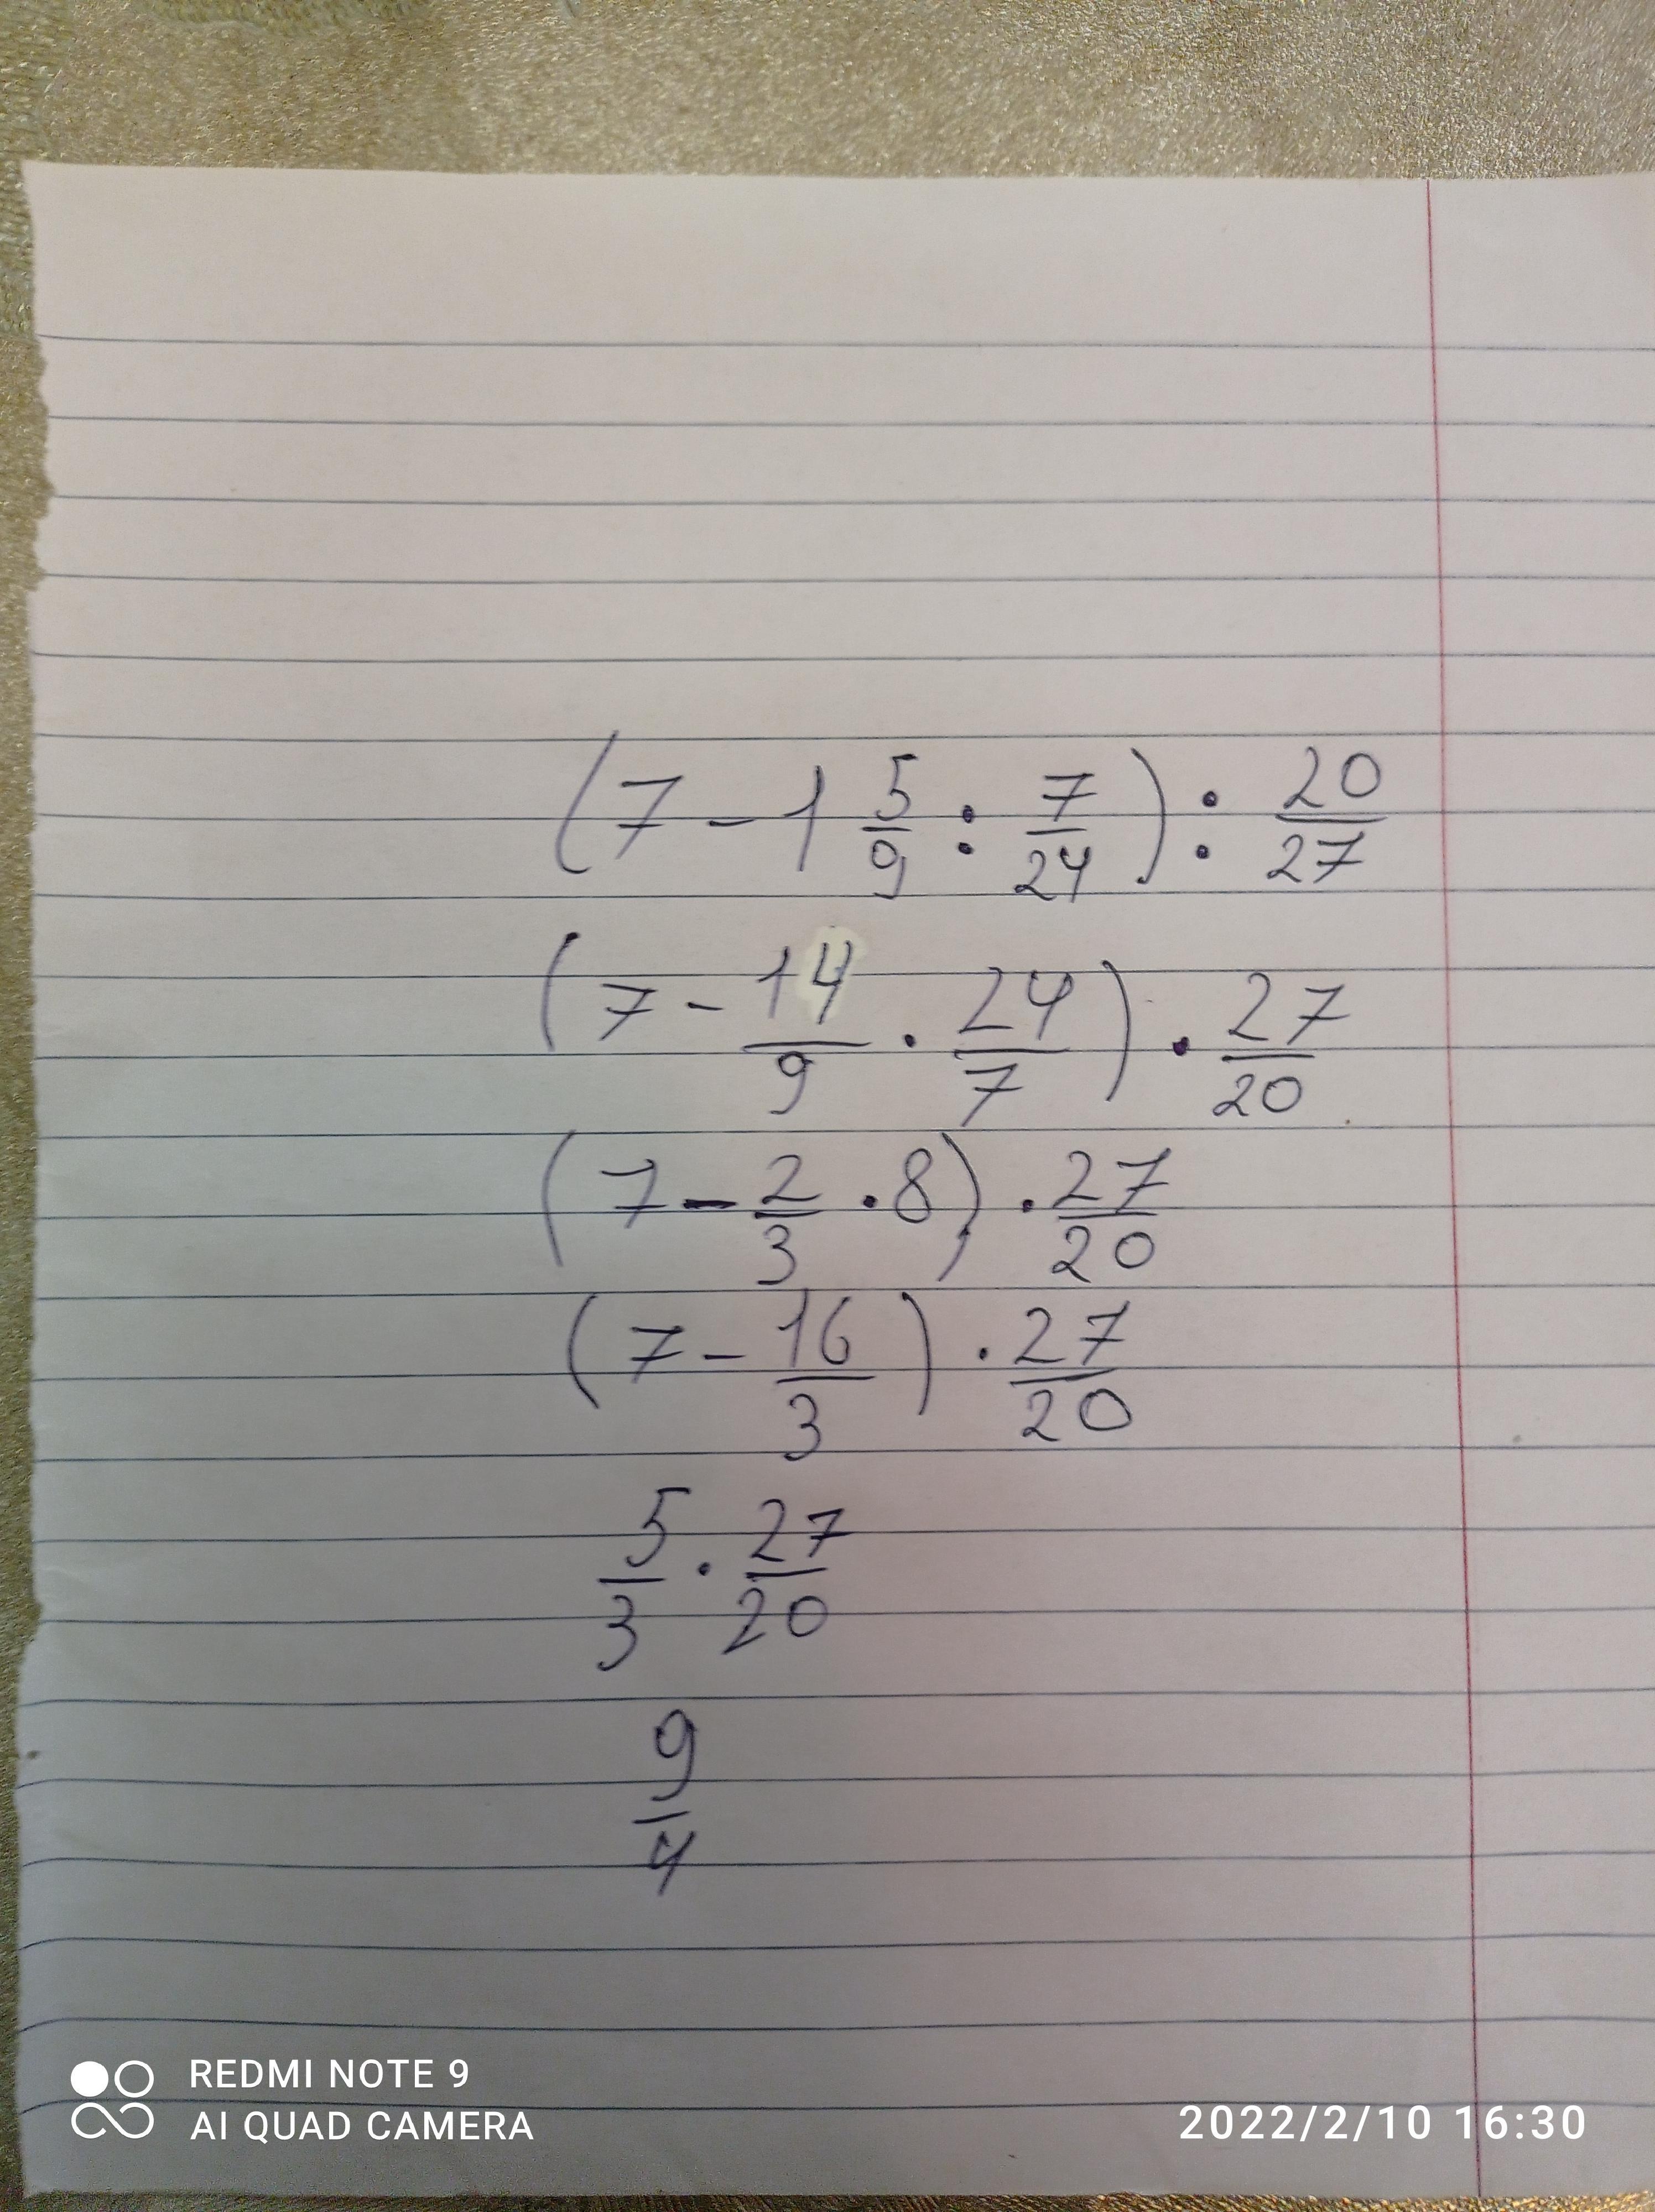 (7 - 1 5/9 : 7/24) : 20/27
(7 - 14/9 · 24/7) · 27/20
(7 - 2/3 · 8) · 27/20
(7 - 16/3) · 27/20
5/3 · 27/20
9/4
REDMI NOTE 9
AI QUAD CAMERA
2022/2/10 16:30